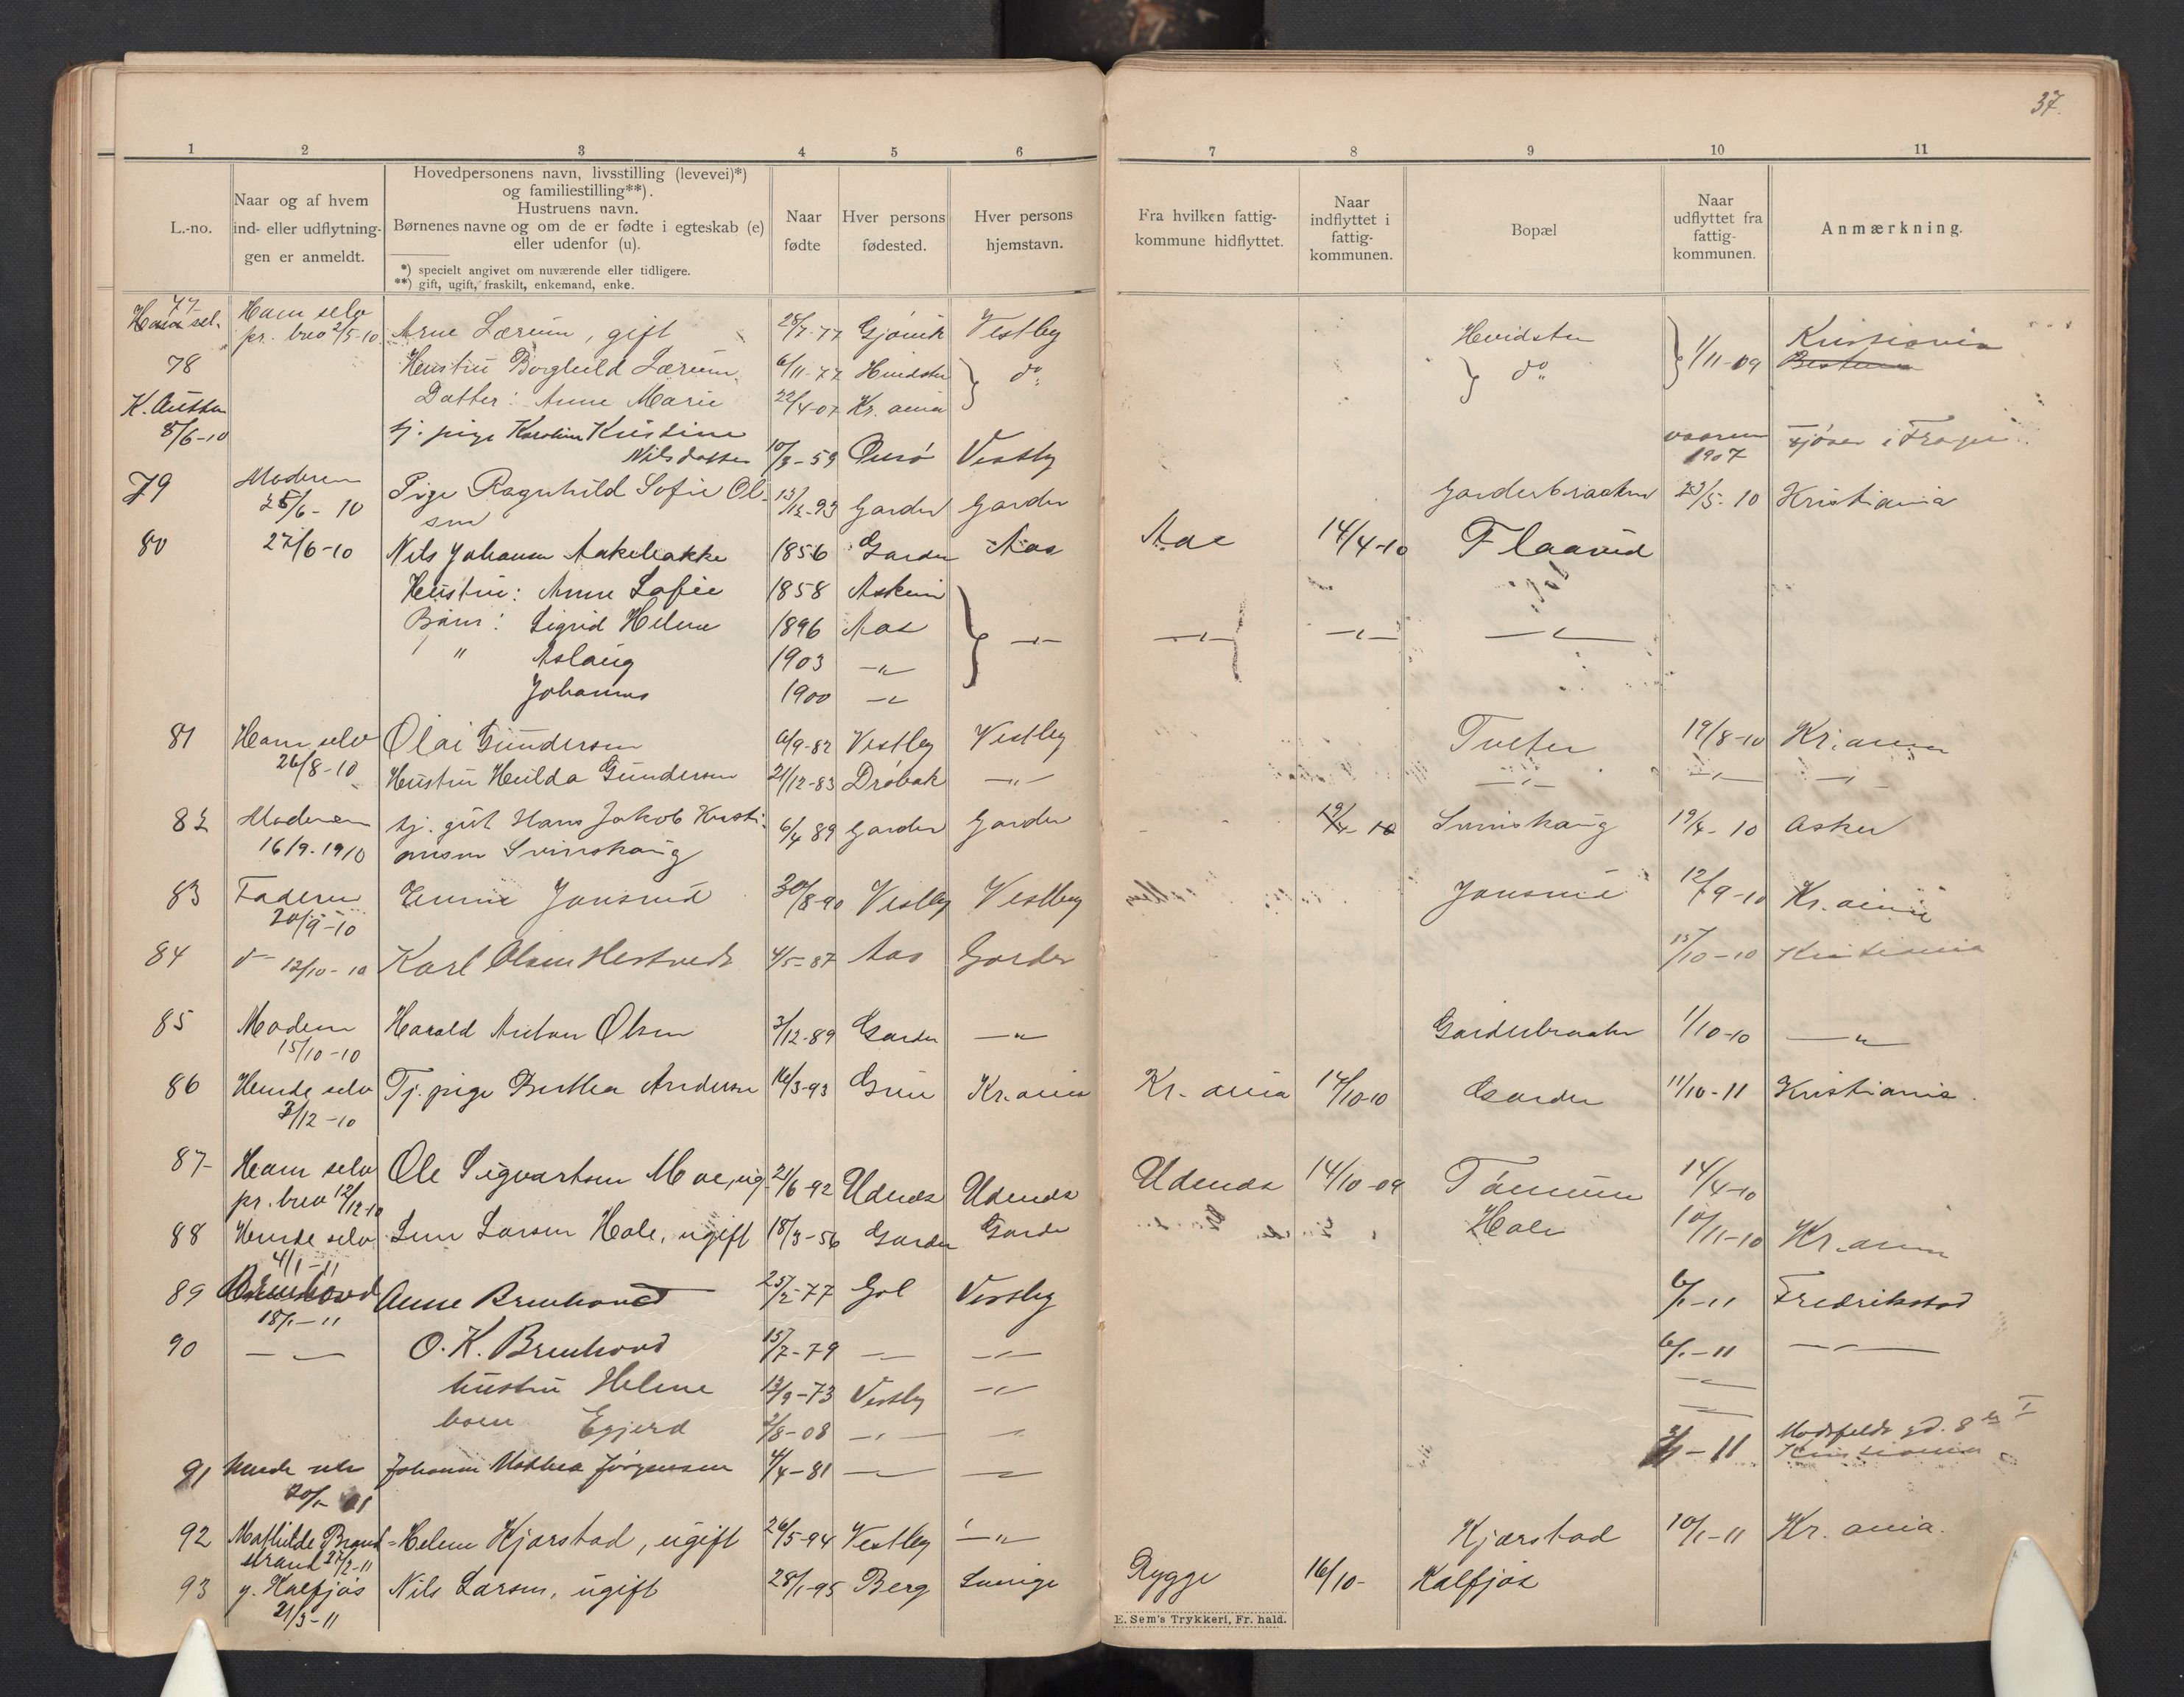 37.
1 2 3 4 5 6 7 8 9 10 11
L.-no.
Naar og af hvem
ind- eller udflytnin-
gen er anmeldt.
Hovedpersonens navn, livsstilling (levevei)*)
og familiestilling**).
Hustruens navn.
Børnenes navne og om de er fødte i egteskab (e)
eller udenfor (u).
*) specielt angivet om nuværende eller tidligere.
**) gift, ugift, fraskilt, enkemand, enke.
Naar
fødte
Hver persons
fødested.
Hver persons
hjemstavn.
Fra hvilken fattig-
kommune hidflyttet.
Naar
indflyttet i
fattig-
kommunen.
Bopæl
Naar
udflyttet fra
fattig-
kommunen.
Anmærkning.
77 Ham selv
pr. brev 2/5-10 Arne Lærum, gift 28/7-77 Gjøvik Vestby Hvidsten 1/11-09 Kristiania
78 Hustru Borghild Lærum 6/11-77 Hvidsten do do
Datter: Anne Marie 22/4-07 Kr.ania
8/6-10 tj. pige Karoline Kristine vaaren
Nilsdatter 10/3-59 Vestby 1907
79 Moderen Pige Ragnhild Sofie Ol- 13/12-93 Garder Garder Garderbraaten 23/5-10 Kristiania
25/6-10 sen
80 27/6-10 Nils Johansen Aakebakke 1856 Garder Aas Aas 14/4-10 Flaarud
Hustru: Anne Sofie 1858 Askim
Børn: Sigrid Helene 1896 Aas -"- -"- -"- -"-
" Aslaug 1903 -"-
Johannes 1900 -"-
81 Ham selv Olai Gundersen 6/9-82 Vestby Vestby Tveter 19/8-10 Kr.ania
26/8-10 Hustru Hulda Gundersen 21/12-83 Drøbak -"- -"- -"- -"-
82 Moderen tj. gut Hans Jakob Kristi- 6/4 89 Garder Garder 19/4-10 Svinskaug 19/4-10 Asker
16/9-1910 ansen Svinskaug
83 Faderen Jonsrud 30/8-90 Vestby Vestby Jonsrud 12/9-10 Kr.ania
20/9-10
84 12/10-10 Karl Olsen 4/5-87 Aas Garder 15/10-10 Kristiania
85 Moderen Harald Anton Olsen 3/12-89 Garder -"- Garderbraaten 1/10-10 -"-
15/10-10
86 Hende selv Tj. pige Berthea Andersen 16/3-93 Kr.ania Kr.ania 17/10-10 Garder 11/10-11 Kristiania.
3/12-10
87 Ham selv Ole Sigvartsen Moe, ug. 21/6-92 Udenæs Udenæs Udenæs 14/10-09 14/4-10
pr. brev 12/12-10
88 Hende selv Larsen Hole, ugift 18/3-56 Garder Garder Hole 10/11-10 Kr.ania
4/1-11
89 Brenhovd Anne Brenhovd 25/2-77 Gol Vestby 6/1-11 Fredrikstad
18/1-11
90 -"- O. K. Brenhovd 15/7-79 -"- -"- 6/1-11 -"-
hustru Helene 13/9-73 Vestby -"- -"-
barn 2/8-08 -"- -"- -"-
91 Hende selv Mathea Jørgensen 4/4-81 -"- -"- Kristiania
20/1-11
92 Mathilde Brand- Helene Kjærstad, ugift 26/5-94 Vestby -"- Kjærstad 10/1-11 Kr.ania.
strand 27/2-11
93 g. Kalfjøs Nils Larsen, ugift 28/1-95 Berg Rygge 16/10- Kalfjøs
21/3-11
E. Sem's Trykkeri, Fr. hald.